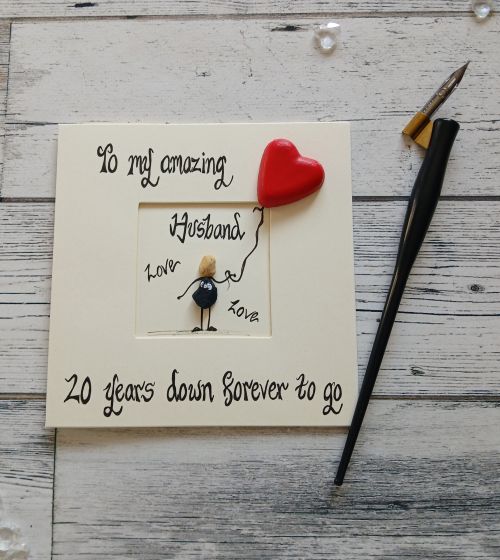 To my amazing
Husband
Love
Love
20 years down forever to go